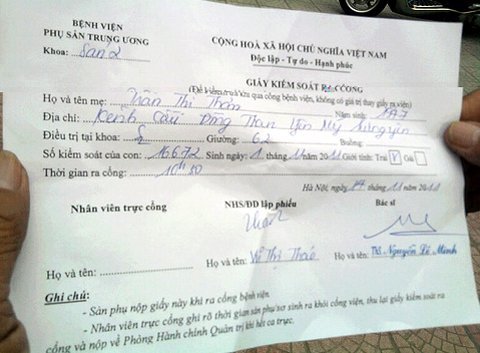 BỆNH VIỆN
PHỤ SẢN TRUNG ƯƠNG
Khoa: Sản 2
CỘNG HOÀ XÃ HỘI CHỦ NGHĨA VIỆT NAM
Độc lập - Tự do - Hạnh phúc
GIẤY KIỂM SOÁT RA CỔNG
(Để kiểm soát khi qua cổng bệnh viện, không có giá trị thay giấy ra viện)
Họ và tên mẹ: Trần Thị Thắm Năm sinh:
Địa chỉ: Kênh Cầu Đồng Than Yên Mỹ Hưng Yên
Điều trị tại khoa: Giường: 62 Buồng:
Số kiểm soát của con: 16672 Sinh ngày 1 tháng 11 năm 2011 Giới tính: Trai V Gái
Thời gian ra cổng: 10h30
Hà Nội, ngày 14 tháng 11 năm 2011
Nhân viên trực cổng NHS/ĐD lập phiếu Bác sĩ
Họ và tên: Họ và tên: Vũ Thị Thảo Họ và tên: ThS Nguyễn Lê Minh
Ghi chú:
- Sản phụ nộp giấy này khi ra cổng bệnh viện.
- Nhân viên trực cổng ghi rõ thời gian sản phụ/sơ sinh ra khỏi cổng viện, thu lại giấy kiểm soát ra
cổng và nộp về Phòng Hành chính Quản trị khi hết ca trực.